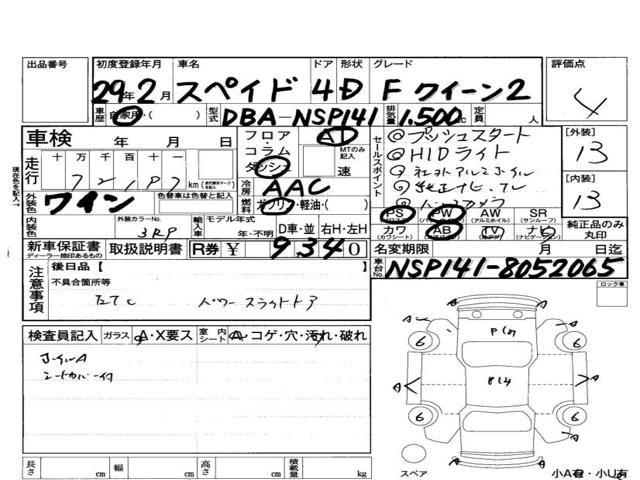 出品番号 初度登録年月 車名 ドア 形状 グレード 評価点
29年2月 スペイド 4D F クイーン2 4
車歴 自家用・( ) 型式 DBA-NSP141 排気量 1.500cc 定員 人
車検 年 月 日
フロア・コラム ダッシュ AT MTのみ記入 速
セールスポイント
◎プッシュスタート
◎HIDライト
[外装] 13
[内装] 13
走行 十万 万 千 百 十 一
7 2 1 8 7 km
冷房 AAC
外装色 ワイン 色替車は色替と記入
燃料 ガソリン・軽油・( )
PS PW AW SR
(アルミホイル) (サンルーフ)
カワ AB TV ナビ
純正品のみ丸印
内装色 外装カラーNo. 3R9 輸入車 モデル年式 年・不明 D車・並 右H・左H
新車保証書 取扱説明書 R券 ¥ 9340
ディーラー捺印あるもの
名変期限 月 日迄
車台No. NSP141-8052065
注意事項 後日品[ ]
不具合箇所等
パワースライドドア
ロック車
検査員記入 ガラス A・X要ス 室内シート A・コゲ・穴・汚れ・破れ
ホイルA
シートカバー付
6 6
6 6
A A
A A
スペア
小A有・小U有
長さ cm 幅 cm 高さ cm 積載量 kg
現在色を記入